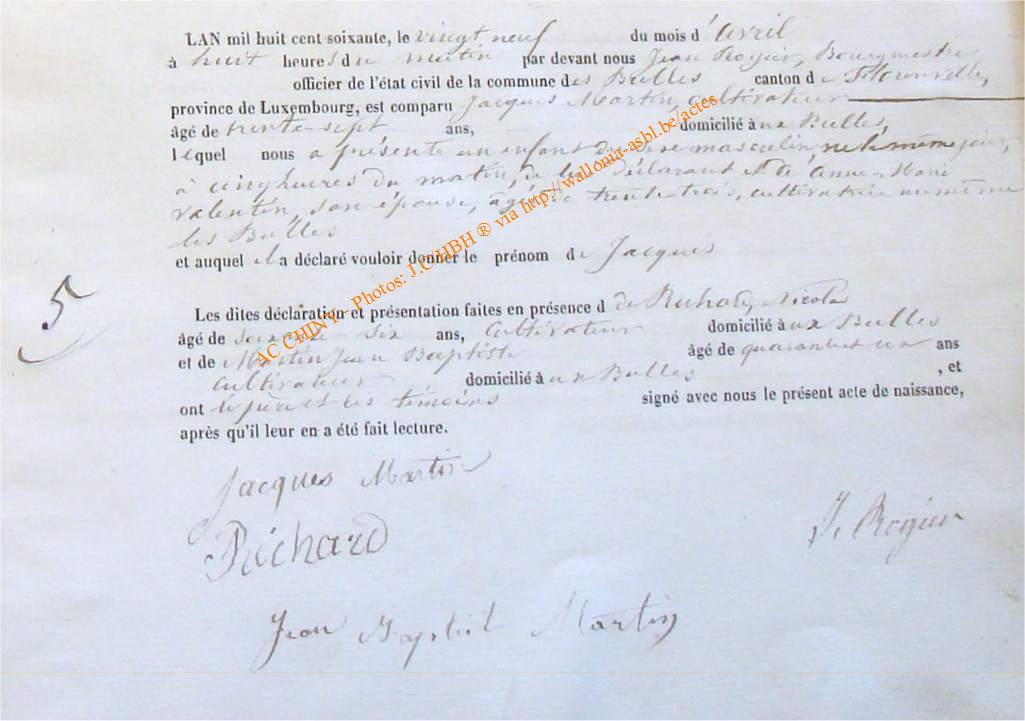 LAN mil huit cent soixante, le vingt neuf du mois d'avril
à huit heures du matin par devant nous Jean Rogier, Bourgmestre
officier de l'état civil de la commune des Bulles canton de Florenville,
province de Luxembourg, est comparu Jacques Martin, cultivateur
âgé de trente-sept ans, domicilié aux Bulles,
lequel nous a présenté un enfant de sexe masculin, né le même jour,
à cinq heures du matin, de lui déclarant et de Anne-Marie
Valentin, son épouse, âgée de trente trois, cultivatrice au même
les Bulles
et auquel il a déclaré vouloir donner le prénom de Jacques
5
Les dites déclaration et présentation faites en présence d de Richard, Nicolas
âgé de soixante-six ans, cultivateur domicilié aux Bulles
et de Martin Jean Baptiste âgé de quarante et un ans
cultivateur domicilié aux Bulles, et
ont le père et les témoins signé avec nous le présent acte de naissance,
après qu'il leur en a été fait lecture.
Jacques Martin
Richard
J. Rogier
Jean Baptist Martin
AC CHINY - Photos: J.C HBH ® via http://wallonia-asbl.be/actes